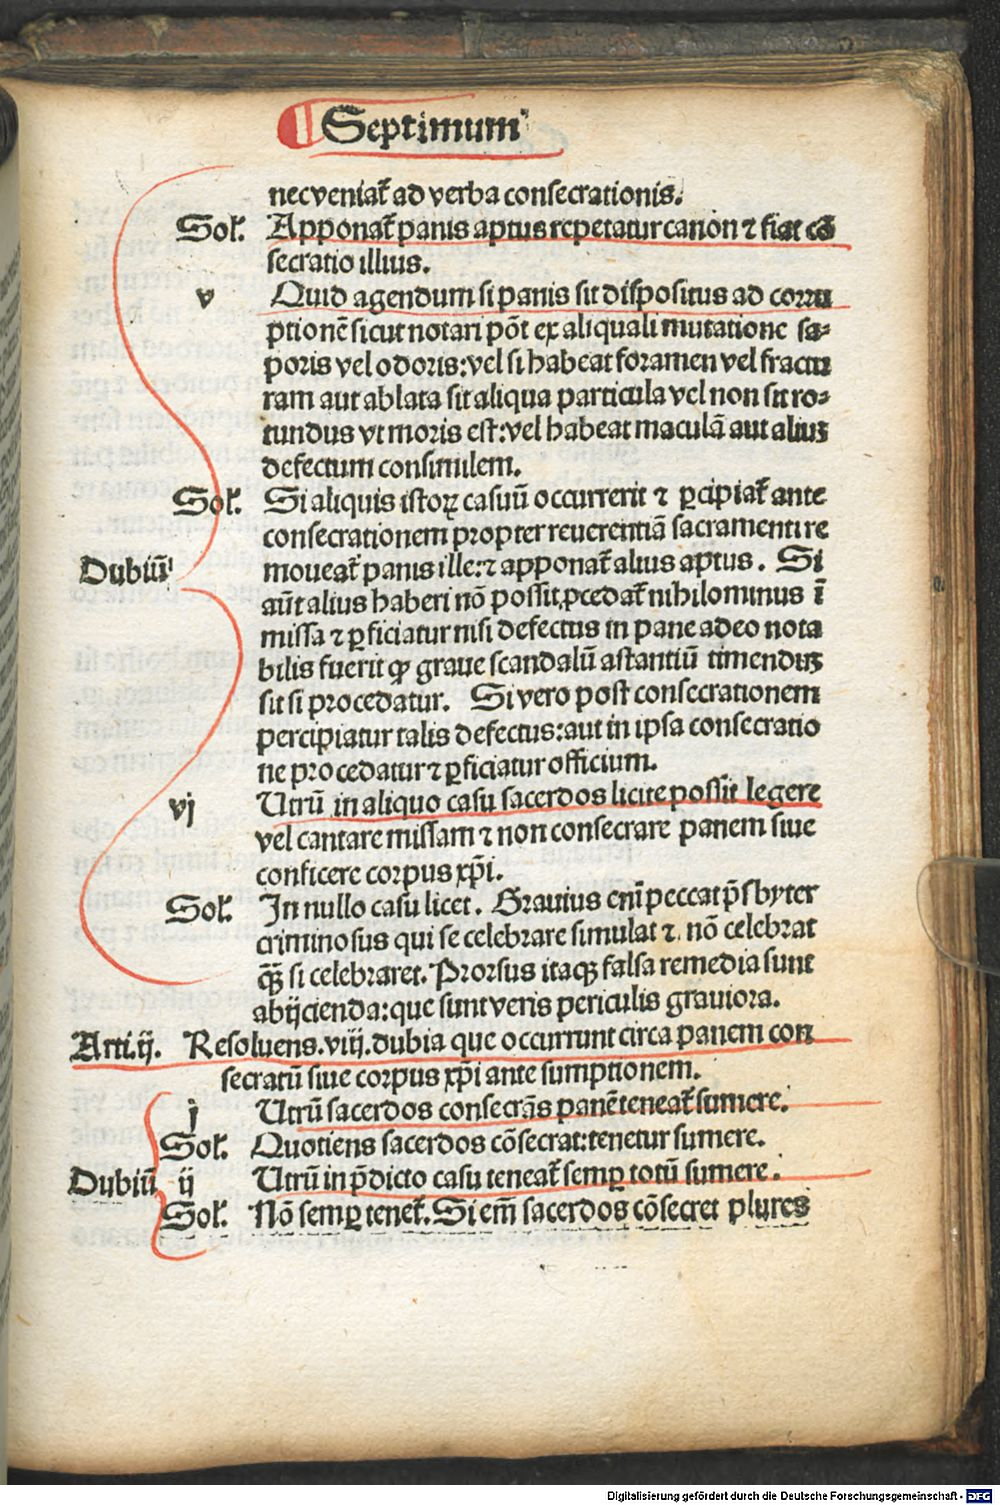 Septimum
nec veniat᷑ ad verba consecrationis.
Sol᷑. Apponat᷑ panis aptus repetatur canon ⁊ fiat cō
secratio illius.
v Quid agendum si panis sit dispositus ad corru
ptionē sicut notari pōt ex aliquali mutatione sa⸗
poris vel odoris: vel si habeat foramen vel fractu
ram aut ablata sit aliqua particula vel non sit ro⸗
tundus vt moris est: vel habeat maculā aut aliuꝫ
defectum consimilem.
Sol᷑. Si aliquis istoꝝ casuū occurrerit ⁊ ꝑcipiat᷑ ante
consecrationem propter reuerentiā sacramenti re
Dubiū moueat᷑ panis ille: ⁊ apponat᷑ alius aptus. Si
aūt alius haberi nō possit, ꝓcedat᷑ nihilominus ī
missa ⁊ ꝑficiatur nisi defectus in pane adeo nota
bilis fuerit ꝙ graue scandalū astantiū timenduꝫ
sit si procedatur. Si vero post consecrationem
percipiatur talis defectus: aut in ipsa consecratio
ne procedatur ⁊ ꝑficiatur officium.
vj Utrū in aliquo casu sacerdos licite possit legere
vel cantare missam ⁊ non consecrare panem siue
conficere corpus xp̄i.
Sol᷑. In nullo casu licet. Grauius eni̅ peccat p̄sbyter
criminosus qui se celebrare simulat ⁊ nō celebrat
q̄ꝫ si celebraret. Prorsus itaqꝫ falsa remedia sunt
abijcienda: que sunt veris periculis grauiora.
Arti.ij. Resoluens .viij. dubia que occurrunt circa panem con
secratū siue corpus xp̄i ante sumptionem.
j Utrū sacerdos consecrās panē teneat᷑ sumere.
Sol᷑. Quotiens sacerdos cōsecrat: tenetur sumere.
Dubiū ij Utrū in p̄dicto casu teneat᷑ semꝑ totū sumere.
Sol᷑. Nō semꝑ tenet᷑. Si em̄ sacerdos cōsecret plures
Digitalisierung gefördert durch die Deutsche Forschungsgemeinschaft - DFG